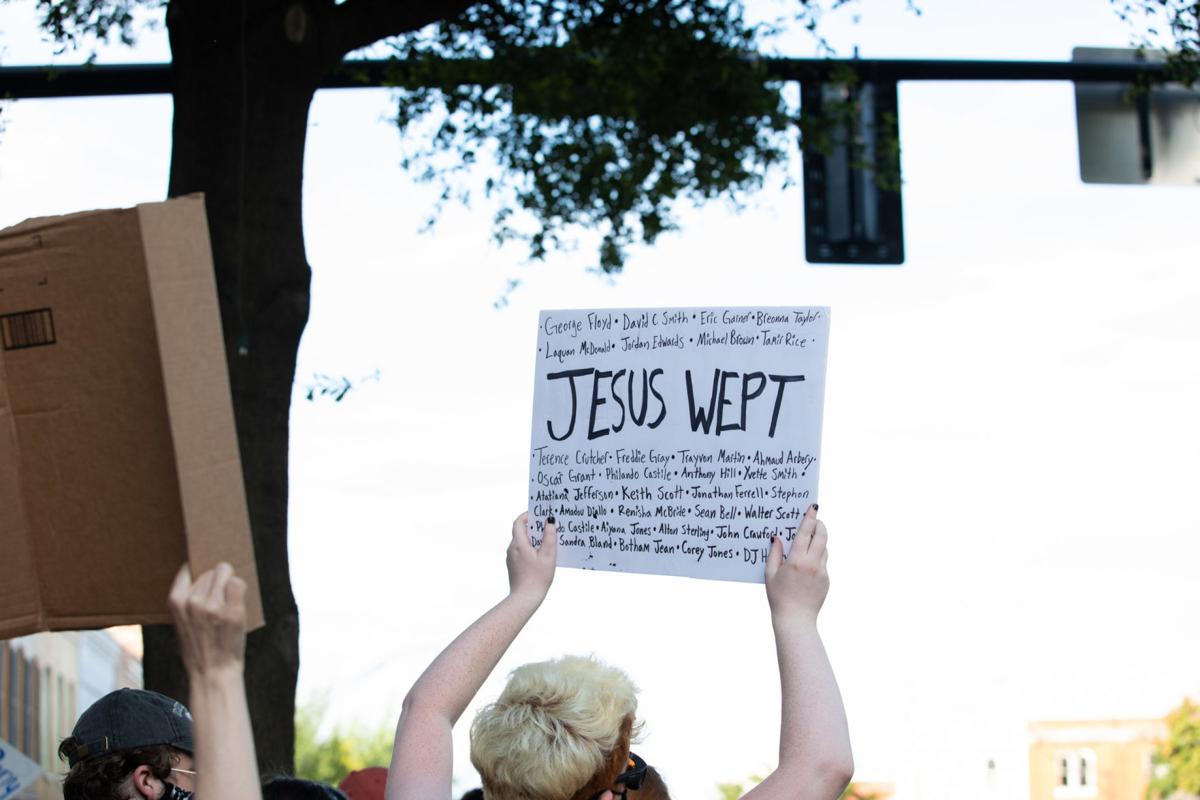 • George Floyd • David C Smith • Eric Garner • Breonna Taylor •
• Laquan McDonald • Jordan Edwards • Michael Brown • Tamir Rice •
JESUS WEPT
• Terence Crutcher • Freddie Gray • Trayvon Martin • Ahmaud Arbery •
• Oscar Grant • Philando Castile • Anthony Hill • Yvette Smith •
• Atatiana Jefferson • Keith Scott • Jonathan Ferrell • Stephon
Clark • Amadou Diallo • Renisha McBride • Sean Bell • Walter Scott •
• Castile • Aiyana Jones • Alton Sterling • John Crawford •
Sandra Bland • Botham Jean • Corey Jones • DJ